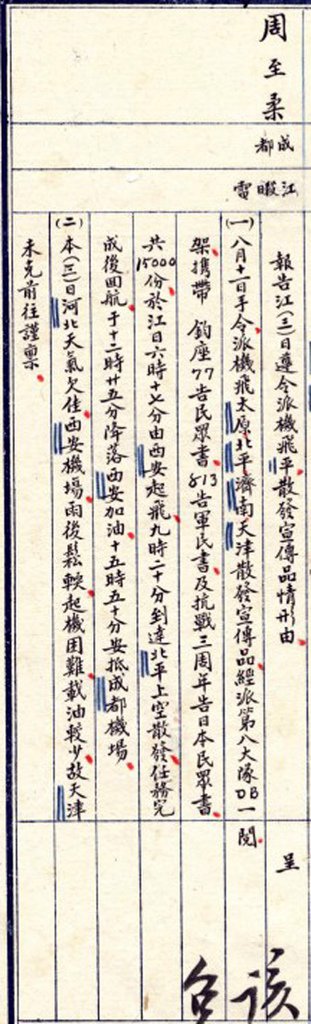 周至柔
成都
江暇電
報告江(三)日遵令派機飛平散發宣傳品情形由
(一)八月十一日手令派機飛太原北平濟南天津散發宣傳品經派第八大隊DB一
架攜帶 鈞座77告民眾書813告軍民書及抗戰三周年告日本民眾書
共15000份於江日六時十七分由西安起飛九時二十分到達北平上空散發任務完
成後回航于十二時廿五分降落西安加油十五時五十分安抵成都機場
(二)本(三)日河北天氣欠佳西安機場雨後鬆軟起機困難載油較少故天津
未克前往謹稟
呈
閱